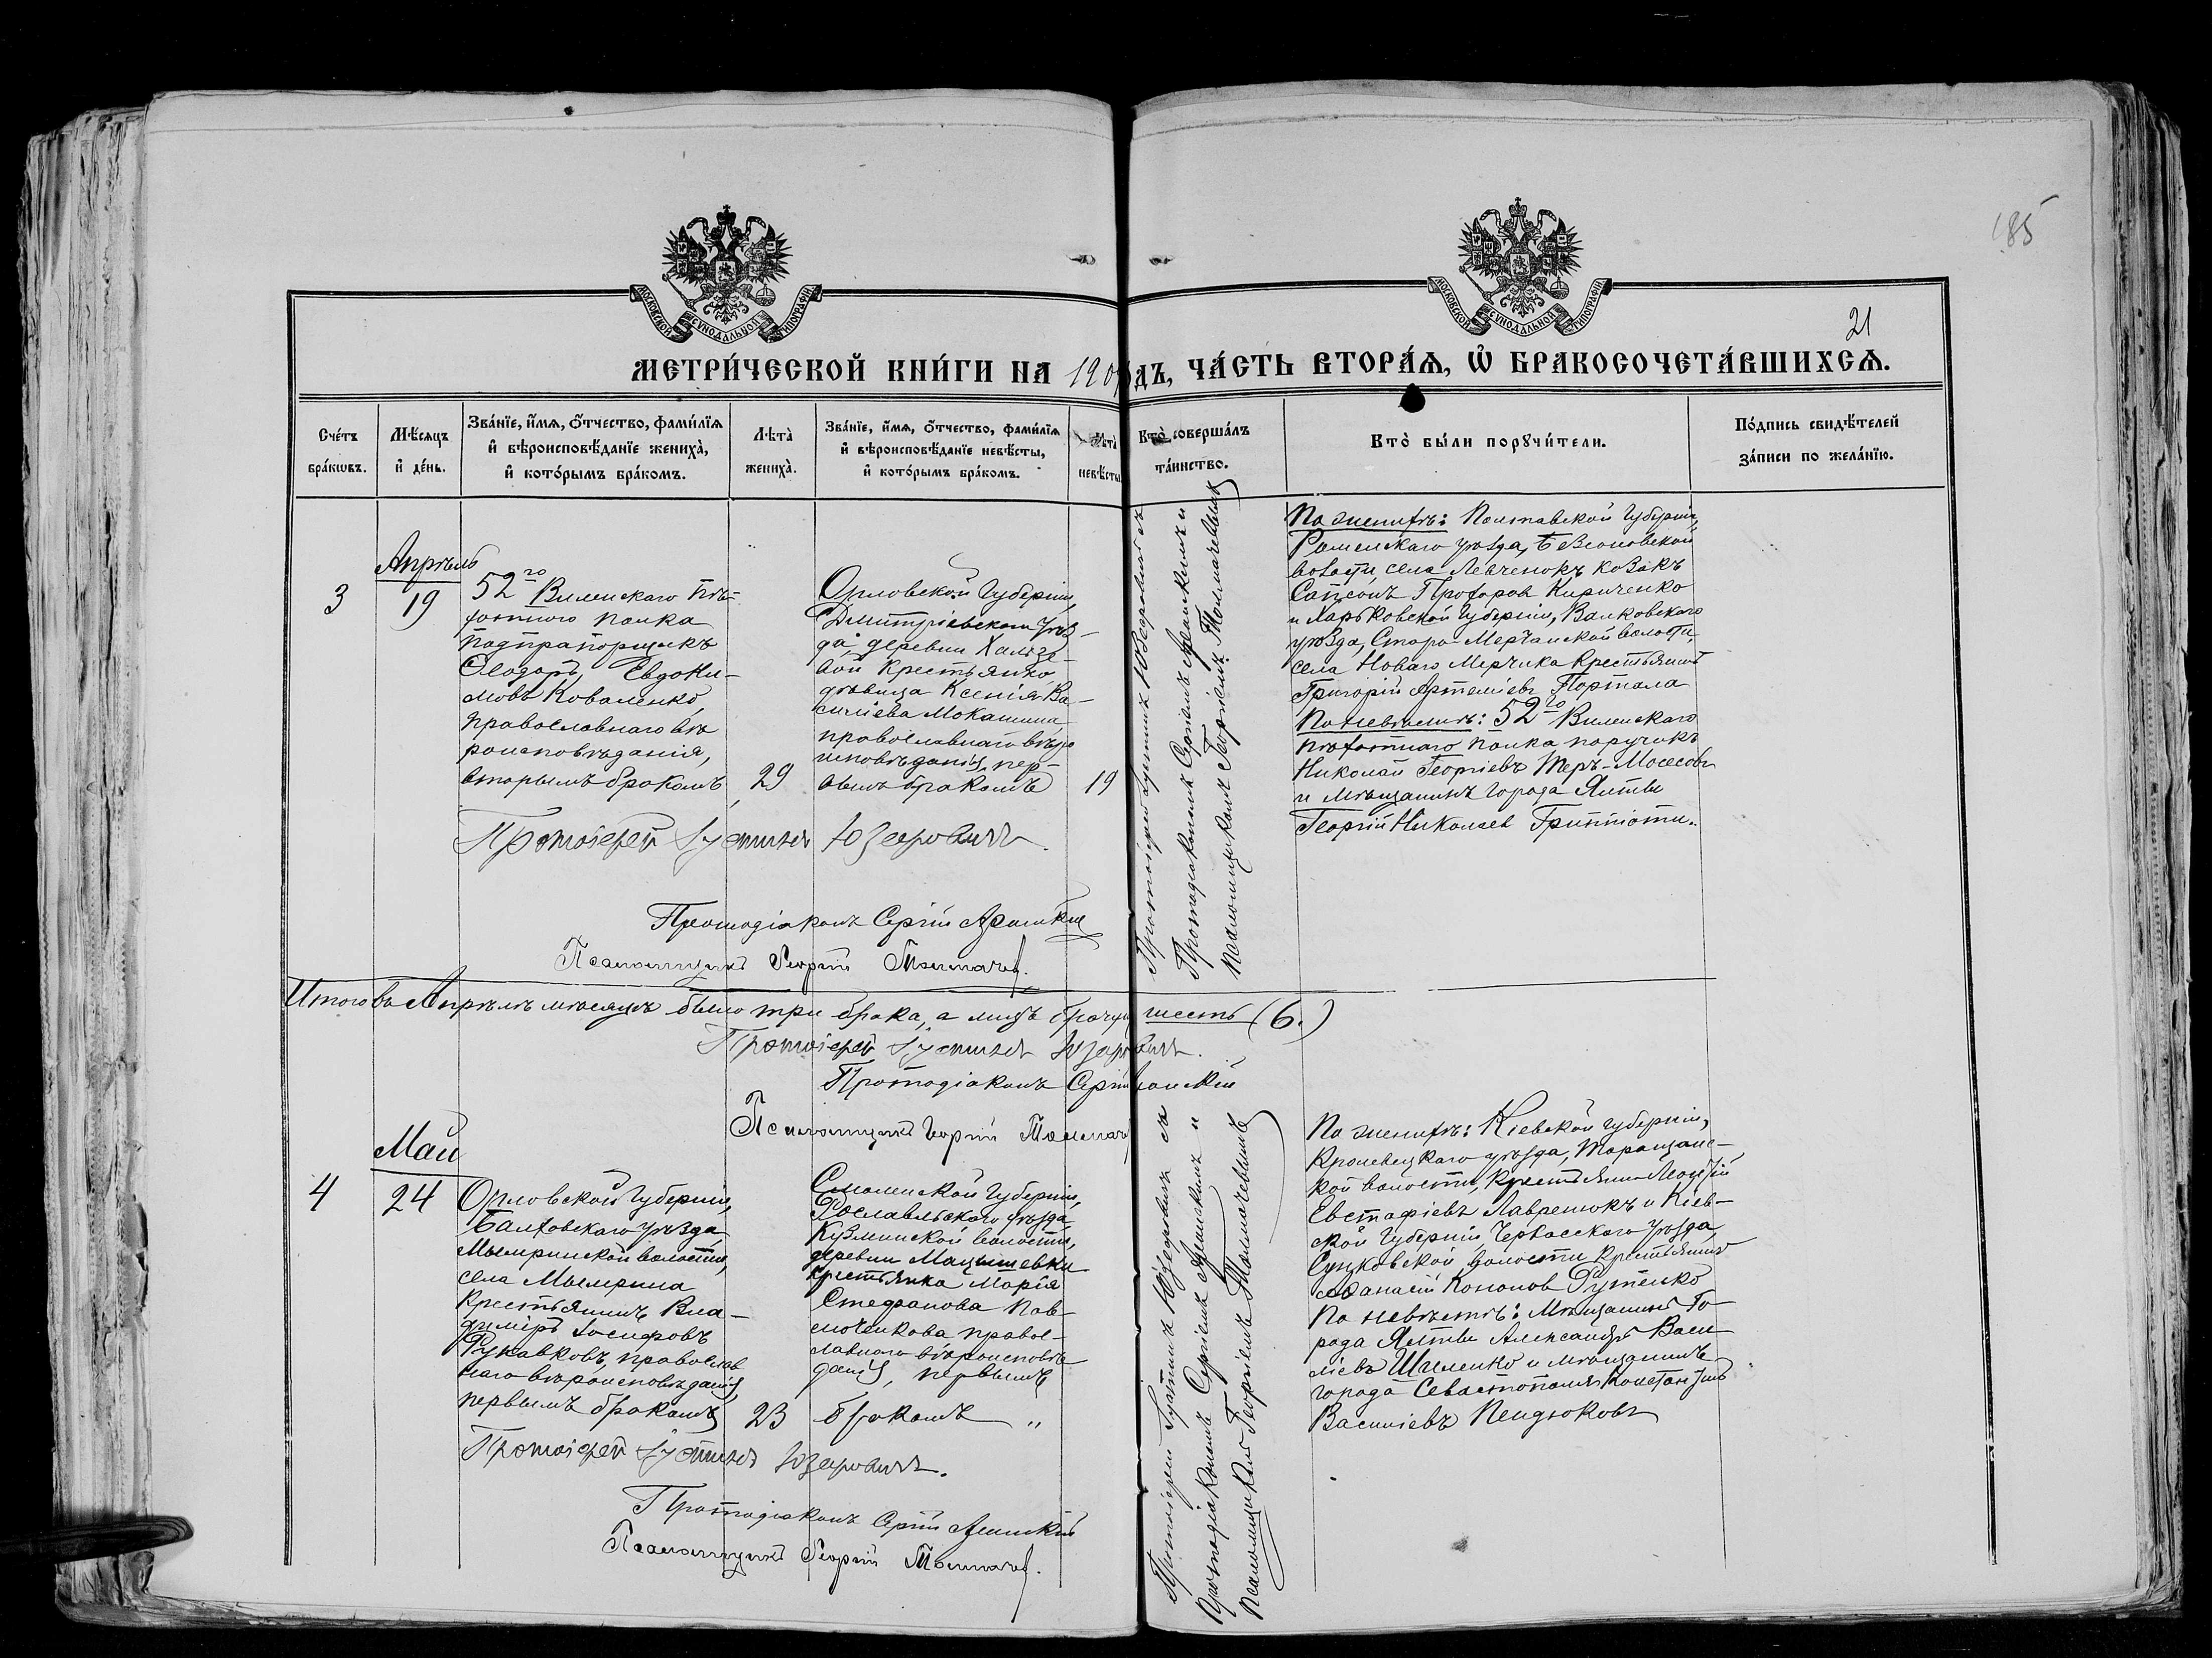 185
21
МОСКОВСКОЙ СѴНОДАЛЬНОЙ ТИПОГРАФІИ
МОСКОВСКОЙ СѴНОДАЛЬНОЙ ТИПОГРАФІИ
МЕТРИ́ЧЕСКОЙ КНИ́ГИ НА 190 ДЪ, ЧА́СТЬ ВТОРА́Ѧ, Ѽ БРАКОСОЧЕТА́ВШИХСѦ.
Сче́тъ
бра́кѡвъ.
Мѣ́сѧцъ
и҆ де́нь.
Зва́нїе, и҆́мѧ, ѻ҆́тчество, фами́лїѧ
и҆ вѣроисповѣ́данїе жениха̀,
и҆ кото́рымъ бра́комъ.
Лѣта̀
жениха̀.
Зва́нїе, и҆́мѧ, ѻ҆́тчество, фами́лїѧ
и҆ вѣроисповѣ́данїе невѣ́сты,
и҆ кото́рымъ бра́комъ.
Лѣта̀
невѣ́сты
Кто̀ соверша́лъ
та́инство.
Кто̀ бы́ли порꙋчи́тели.
По́дпись свидѣ́телей
за́писи по жела́нїю.
3
Апрѣль
19
52го Виленскаго пѣ-
хотнаго полка
подпрапорщикъ
Ѳеодоръ Евдоки-
мовъ Коваленко,
православнаго вѣ
роисповѣданія,
вторымъ бракомъ
29
Орловской Губерніи,
Дмитріевскаго уѣз-
да, деревни Халзе-
вой крестьянка
дѣвица Ксенія Ва-
силіева Мокашина
православнаго вѣро
исповѣданія, пер-
вымъ бракомъ
19
Протоіерей Іустинъ Юзефовичъ съ
Протодіакономъ Сергіемъ и
псаломщикомъ Георгіемъ Толмачевымъ
По женихѣ: Полтавской Губерніи,
Роменскаго уѣзда,
волости, села Левченокъ козакъ
Сапсонъ Прохоровъ Кириченко
и Харьковской Губерніи, Валковскаго
уѣзда, Старо-Мерчанской волости,
села Новаго Мерчика крестьянинъ
Григорій Артеміевъ Портала
По невѣстѣ: 52го Виленскаго
пѣхотнаго полка поручикъ
Николай Георгіевъ Теръ-Мосесовъ
и мѣщанинъ города Ялты
Георгій Николаев
Протоіерей Іустинъ Юзефовичъ.
Протодіаконъ Сергій
Псаломщикъ Георгій Толмачев.
Итого въ Апрѣлѣ мѣсяцѣ было три брака, а лицъ шесть (6.)
Протоіерей Іустинъ Юзефовичъ.
Протодіаконъ Сергій
Псаломщикъ Георгій Толмач
4
Май
24
Орловской Губерніи,
Болховскаго уѣзда
Мымринской волости,
села Мымрина
крестьянинъ Вла-
диміръ Іосифовъ
Рукавковъ, православ
наго вѣроисповѣданія,
первымъ бракомъ
23
Смоленской Губерніи,
Рославльскаго уѣзда,
Кузминской волости,
деревни Мацышевки
крестьянка Марія
Стефанова Пав-
люченкова правос-
лавнаго вѣроисповѣ
данія, первымъ
бракомъ "
Протоіерей Іустинъ Юзефовичъ съ
Протодіакономъ Сергіемъ и
псаломщикомъ Георгіемъ Толмачевымъ
По женихѣ: Кіевской губерніи,
уѣзда, Таращанс-
кой волости, крестьянинъ Моисей
Евстафіевъ Лавренюкъ и Кіев-
ской Губерніи, Черкасскаго уѣзда,
Сунковской волости крестьянинъ
Аѳанасій Кононов Рутенко
По невѣстѣ: Мѣщанинъ го-
рода Ялты Александръ Васи-
ліевъ Шиленко и мѣщанинъ
города Севастополя Константинъ
Василіевъ Пендюковъ
Протоіерей Іустинъ Юзефовичъ.
Протодіаконъ Сергій
Псаломщикъ Георгій Толмачев.